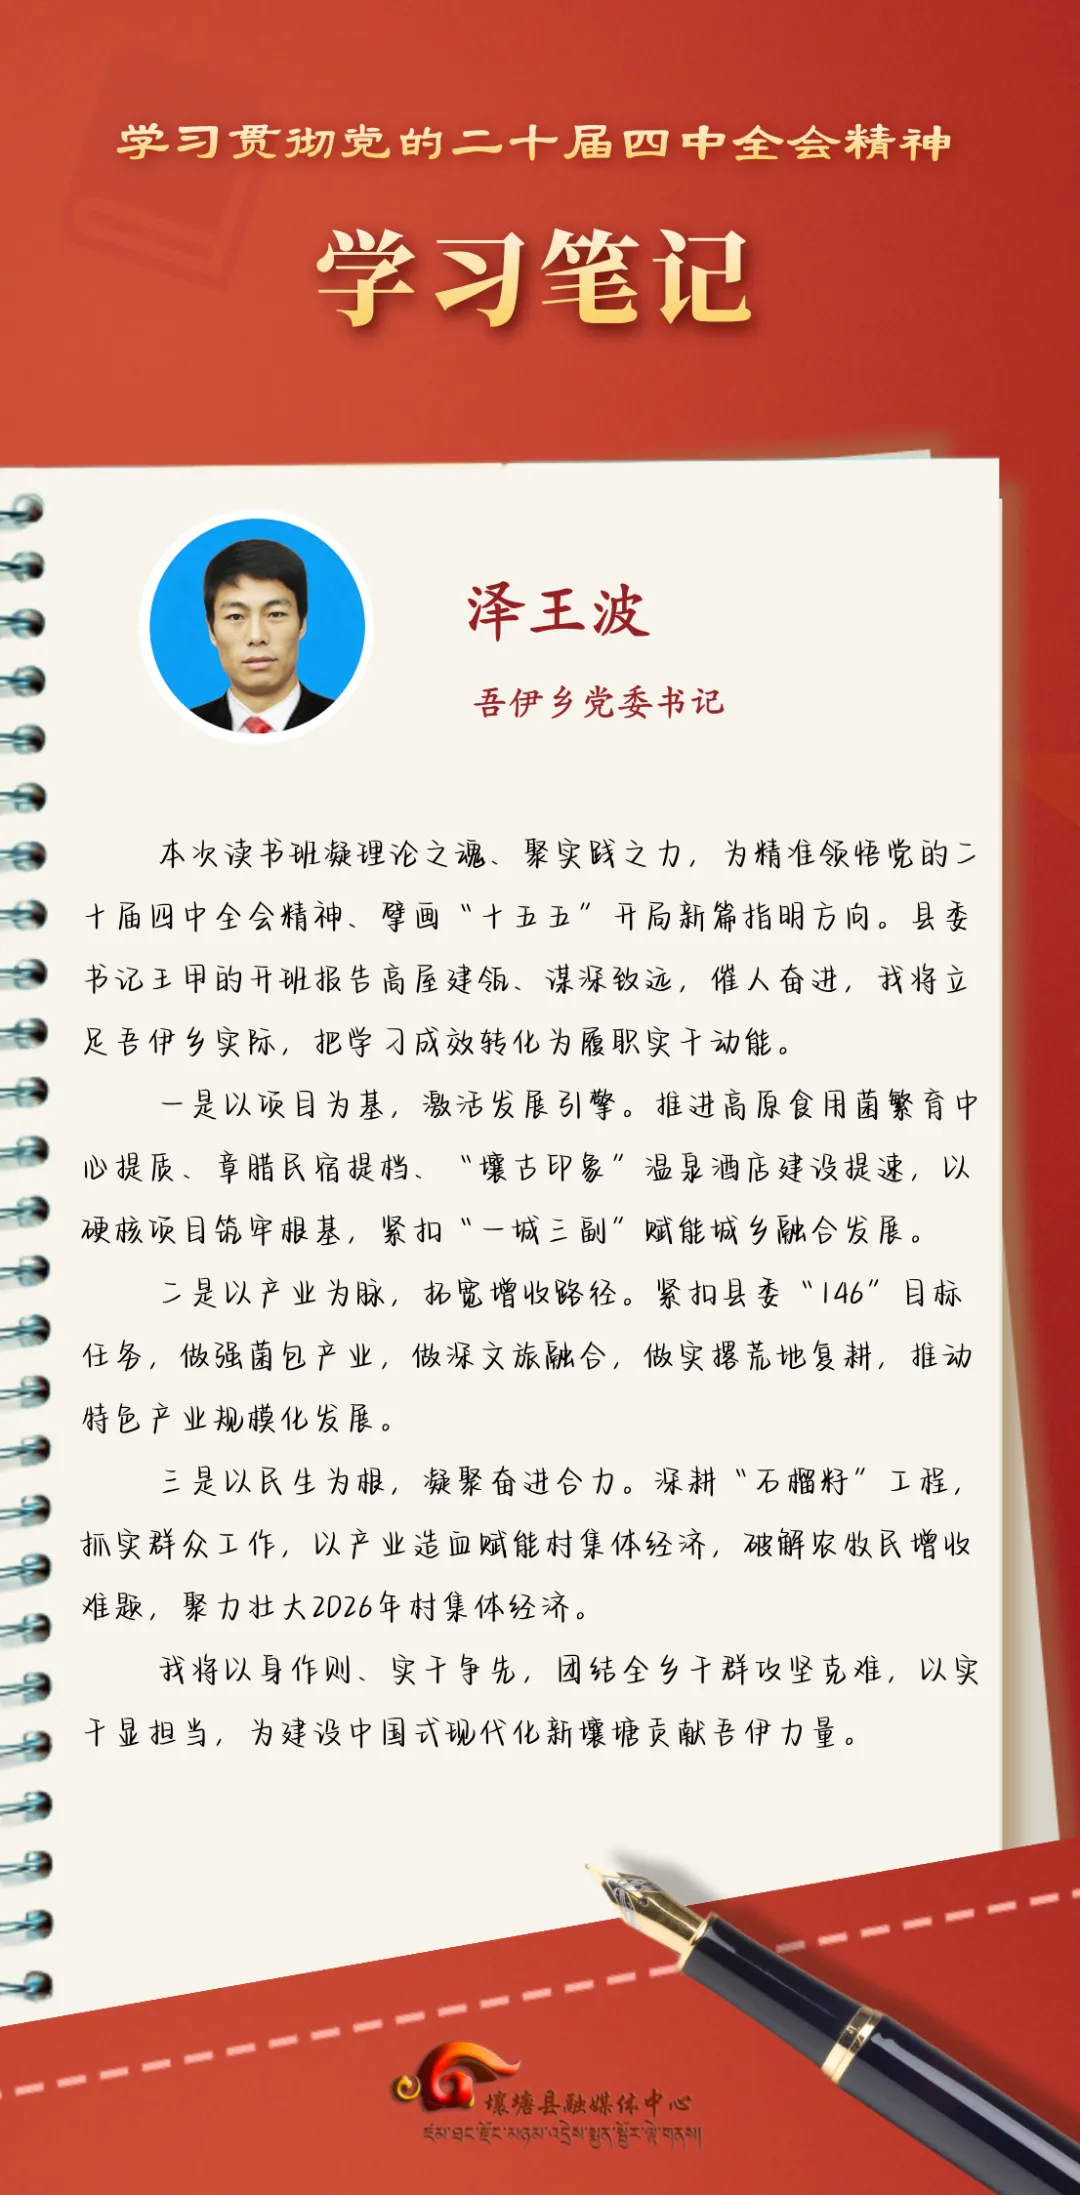 学习贯彻党的二十届四中全会精神
学习笔记
泽王波
吾伊乡党委书记
本次读书班凝理论之魂、聚实践之力，为精准领悟党的二
十届四中全会精神、擘画“十五五”开局新篇指明方向。县委
书记王甲的开班报告高屋建瓴、谋深致远，催人奋进，我将立
足吾伊乡实际，把学习成效转化为履职实干动能。
一是以项目为基，激活发展引擎。推进高原食用菌繁育中
心提质、章腊民宿提档、“壤古印象”温泉酒店建设提速，以
硬核项目筑牢根基，紧扣“一城三副”赋能城乡融合发展。
二是以产业为脉，拓宽增收路径。紧扣县委“146”目标
任务，做强菌包产业，做深文旅融合，做实撂荒地复耕，推动
特色产业规模化发展。
三是以民生为根，凝聚奋进合力。深耕“石榴籽”工程，
抓实群众工作，以产业造血赋能村集体经济，破解农牧民增收
难题，聚力壮大2026年村集体经济。
我将以身作则、实干争先，团结全乡干群攻坚克难，以实
干显担当，为建设中国式现代化新壤塘贡献吾伊力量。
壤塘县融媒体中心
ཛམ་ཐང་རྫོང་མཉམ་འདྲེས་སྨྱན་སྦྱོར་ལྟེ་གནས།